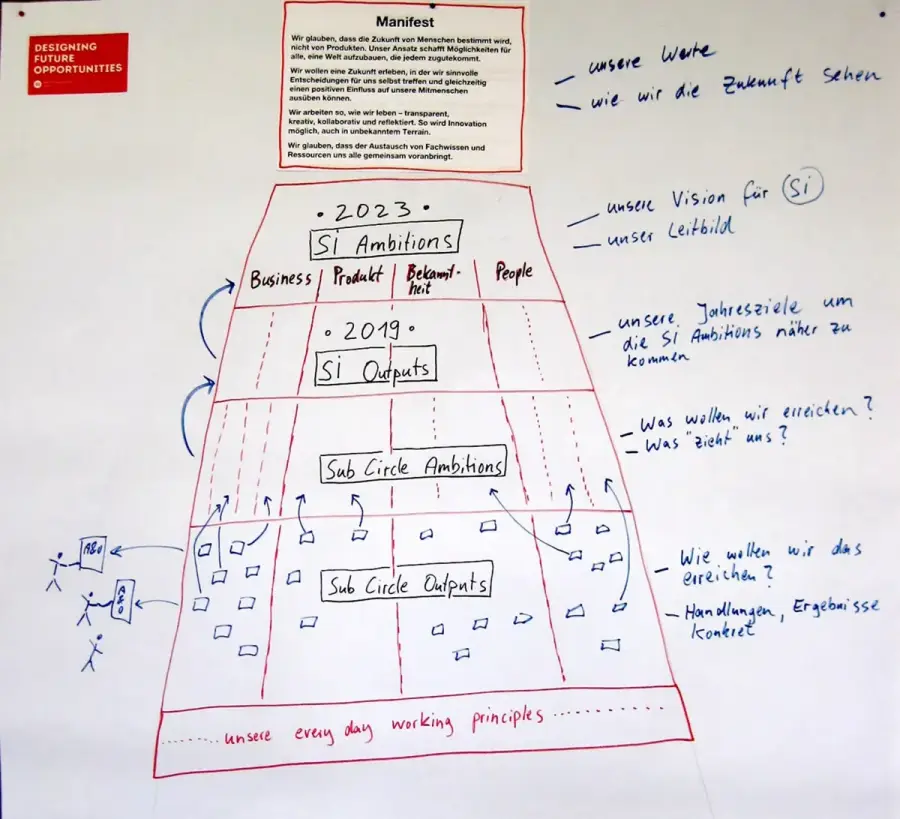 DESIGNING
FUTURE
OPPORTUNITIES
Manifest
Wir glauben, dass die Zukunft von Menschen bestimmt wird,
nicht von Produkten. Unser Ansatz schafft Möglichkeiten für
alle, eine Welt aufzubauen, die jedem zugutekommt.
Wir wollen eine Zukunft erleben, in der wir sinnvolle
Entscheidungen für uns selbst treffen und gleichzeitig
einen positiven Einfluss auf unsere Mitmenschen
ausüben können.
Wir arbeiten so, wie wir leben – transparent,
kreativ, kollaborativ und reflektiert. So wird Innovation
möglich, auch in unbekanntem Terrain.
Wir glauben, dass der Austausch von Fachwissen und
Ressourcen uns alle gemeinsam voranbringt.
– unsere Werte
– wie wir die Zukunft sehen
• 2023 •
SI Ambitions
– unsere Vision für SI
– unser Leitbild
Business
Produkt
Bekannt-
heit
People
• 2019 •
SI Outputs
– unsere Jahresziele um
die SI Ambitions näher zu
kommen
Sub Circle Ambitions
– Was wollen wir erreichen?
– Was "zieht" uns?
A&O
A
&
O
Sub Circle Outputs
– Wie wollen wir das
erreichen?
– Handlungen, Ergebnisse
konkret
........ unsere every day working principles ..............